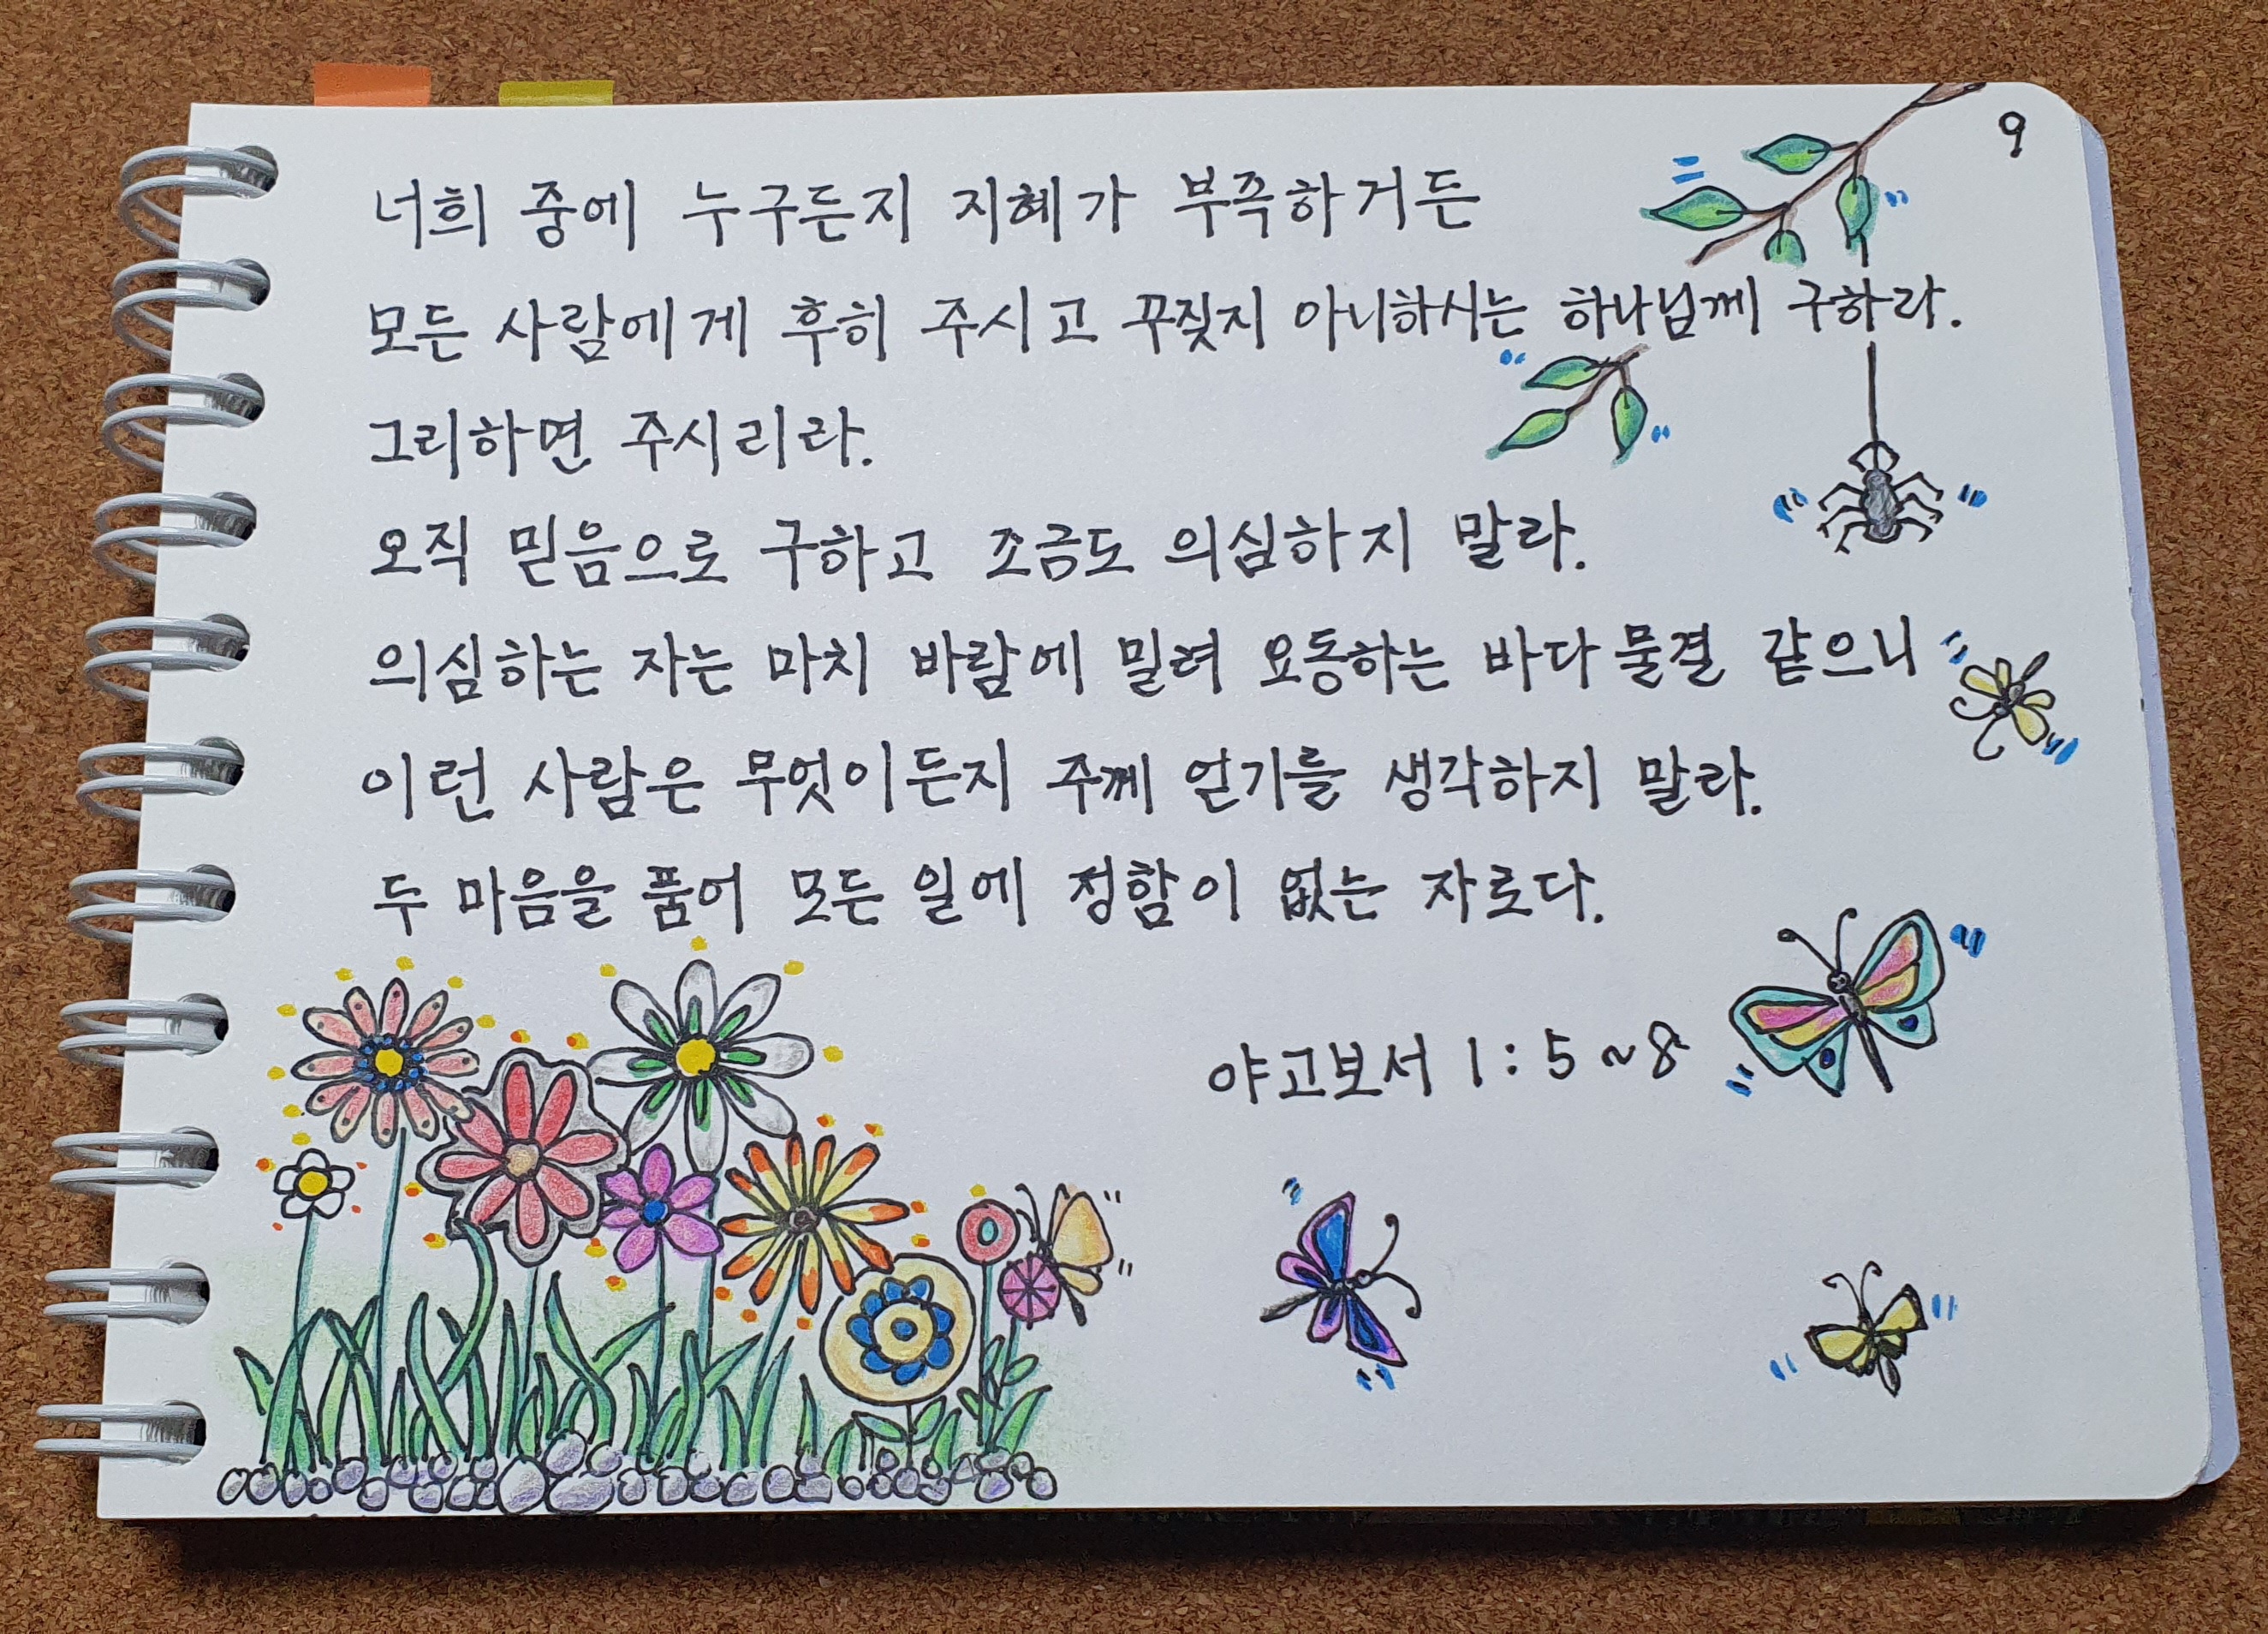 9
너희 중에 누구든지 지혜가 부족하거든
모든 사람에게 후히 주시고 꾸짖지 아니하시는 하나님께 구하라.
그리하면 주시리라.
오직 믿음으로 구하고 조금도 의심하지 말라.
의심하는 자는 마치 바람에 밀려 요동하는 바다 물결 같으니
이런 사람은 무엇이든지 주께 얻기를 생각하지 말라.
두 마음을 품어 모든 일에 정함이 없는 자로다.
야고보서 1:5~8